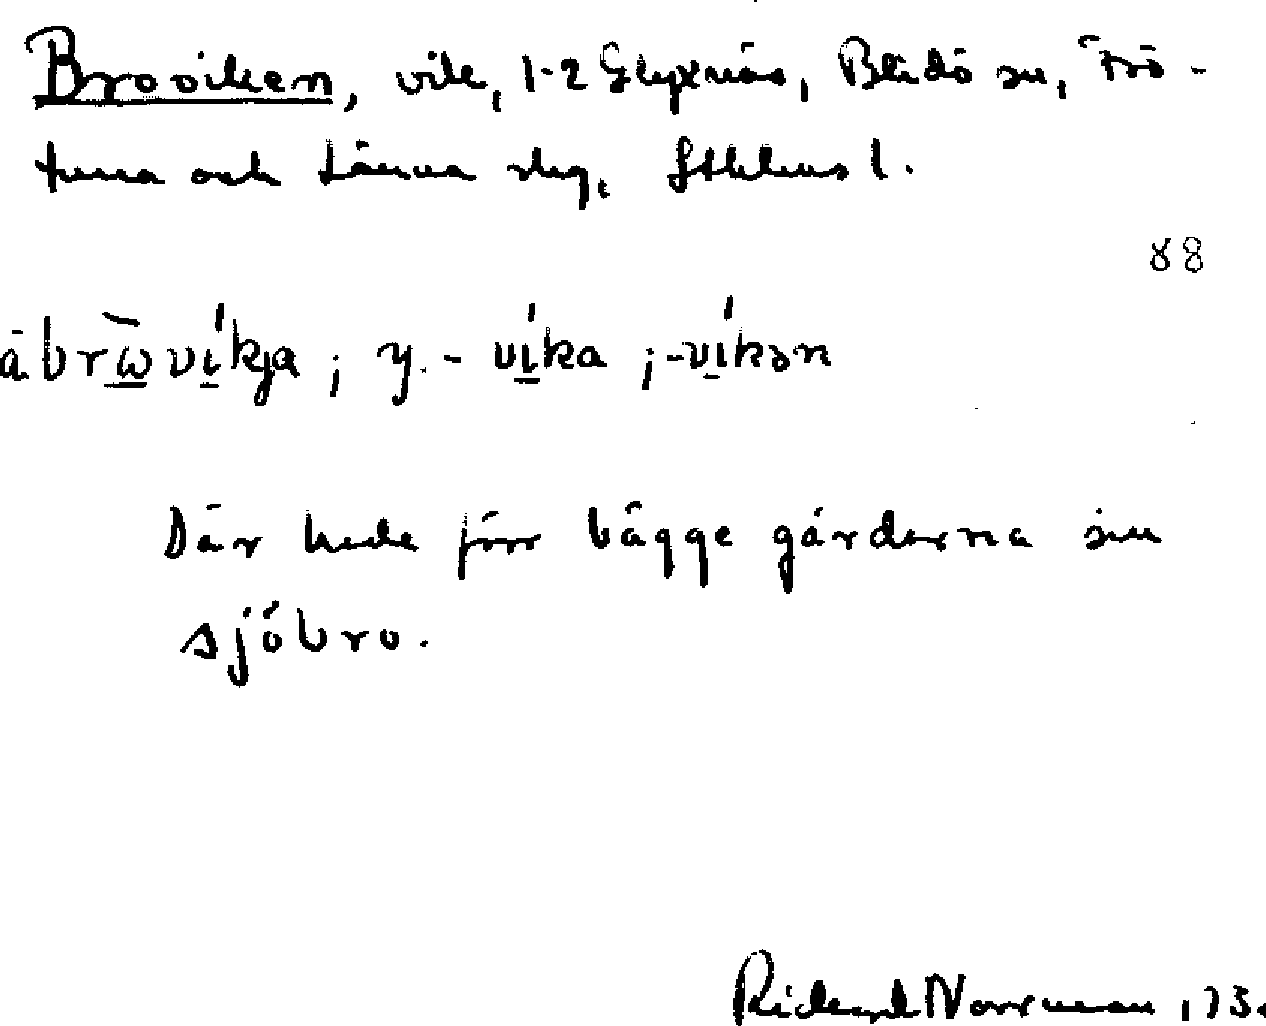 Broviken, vik, 1-2 Glyxnäs, Blidö sn, Frö-
tuna och Länna slg, Sthlms l.
88
ābrω̄víkja; y. - víka; -víkən
Där hade förr bägge gårdarna sin
sjöbro.
Rickard Norrman, 193.